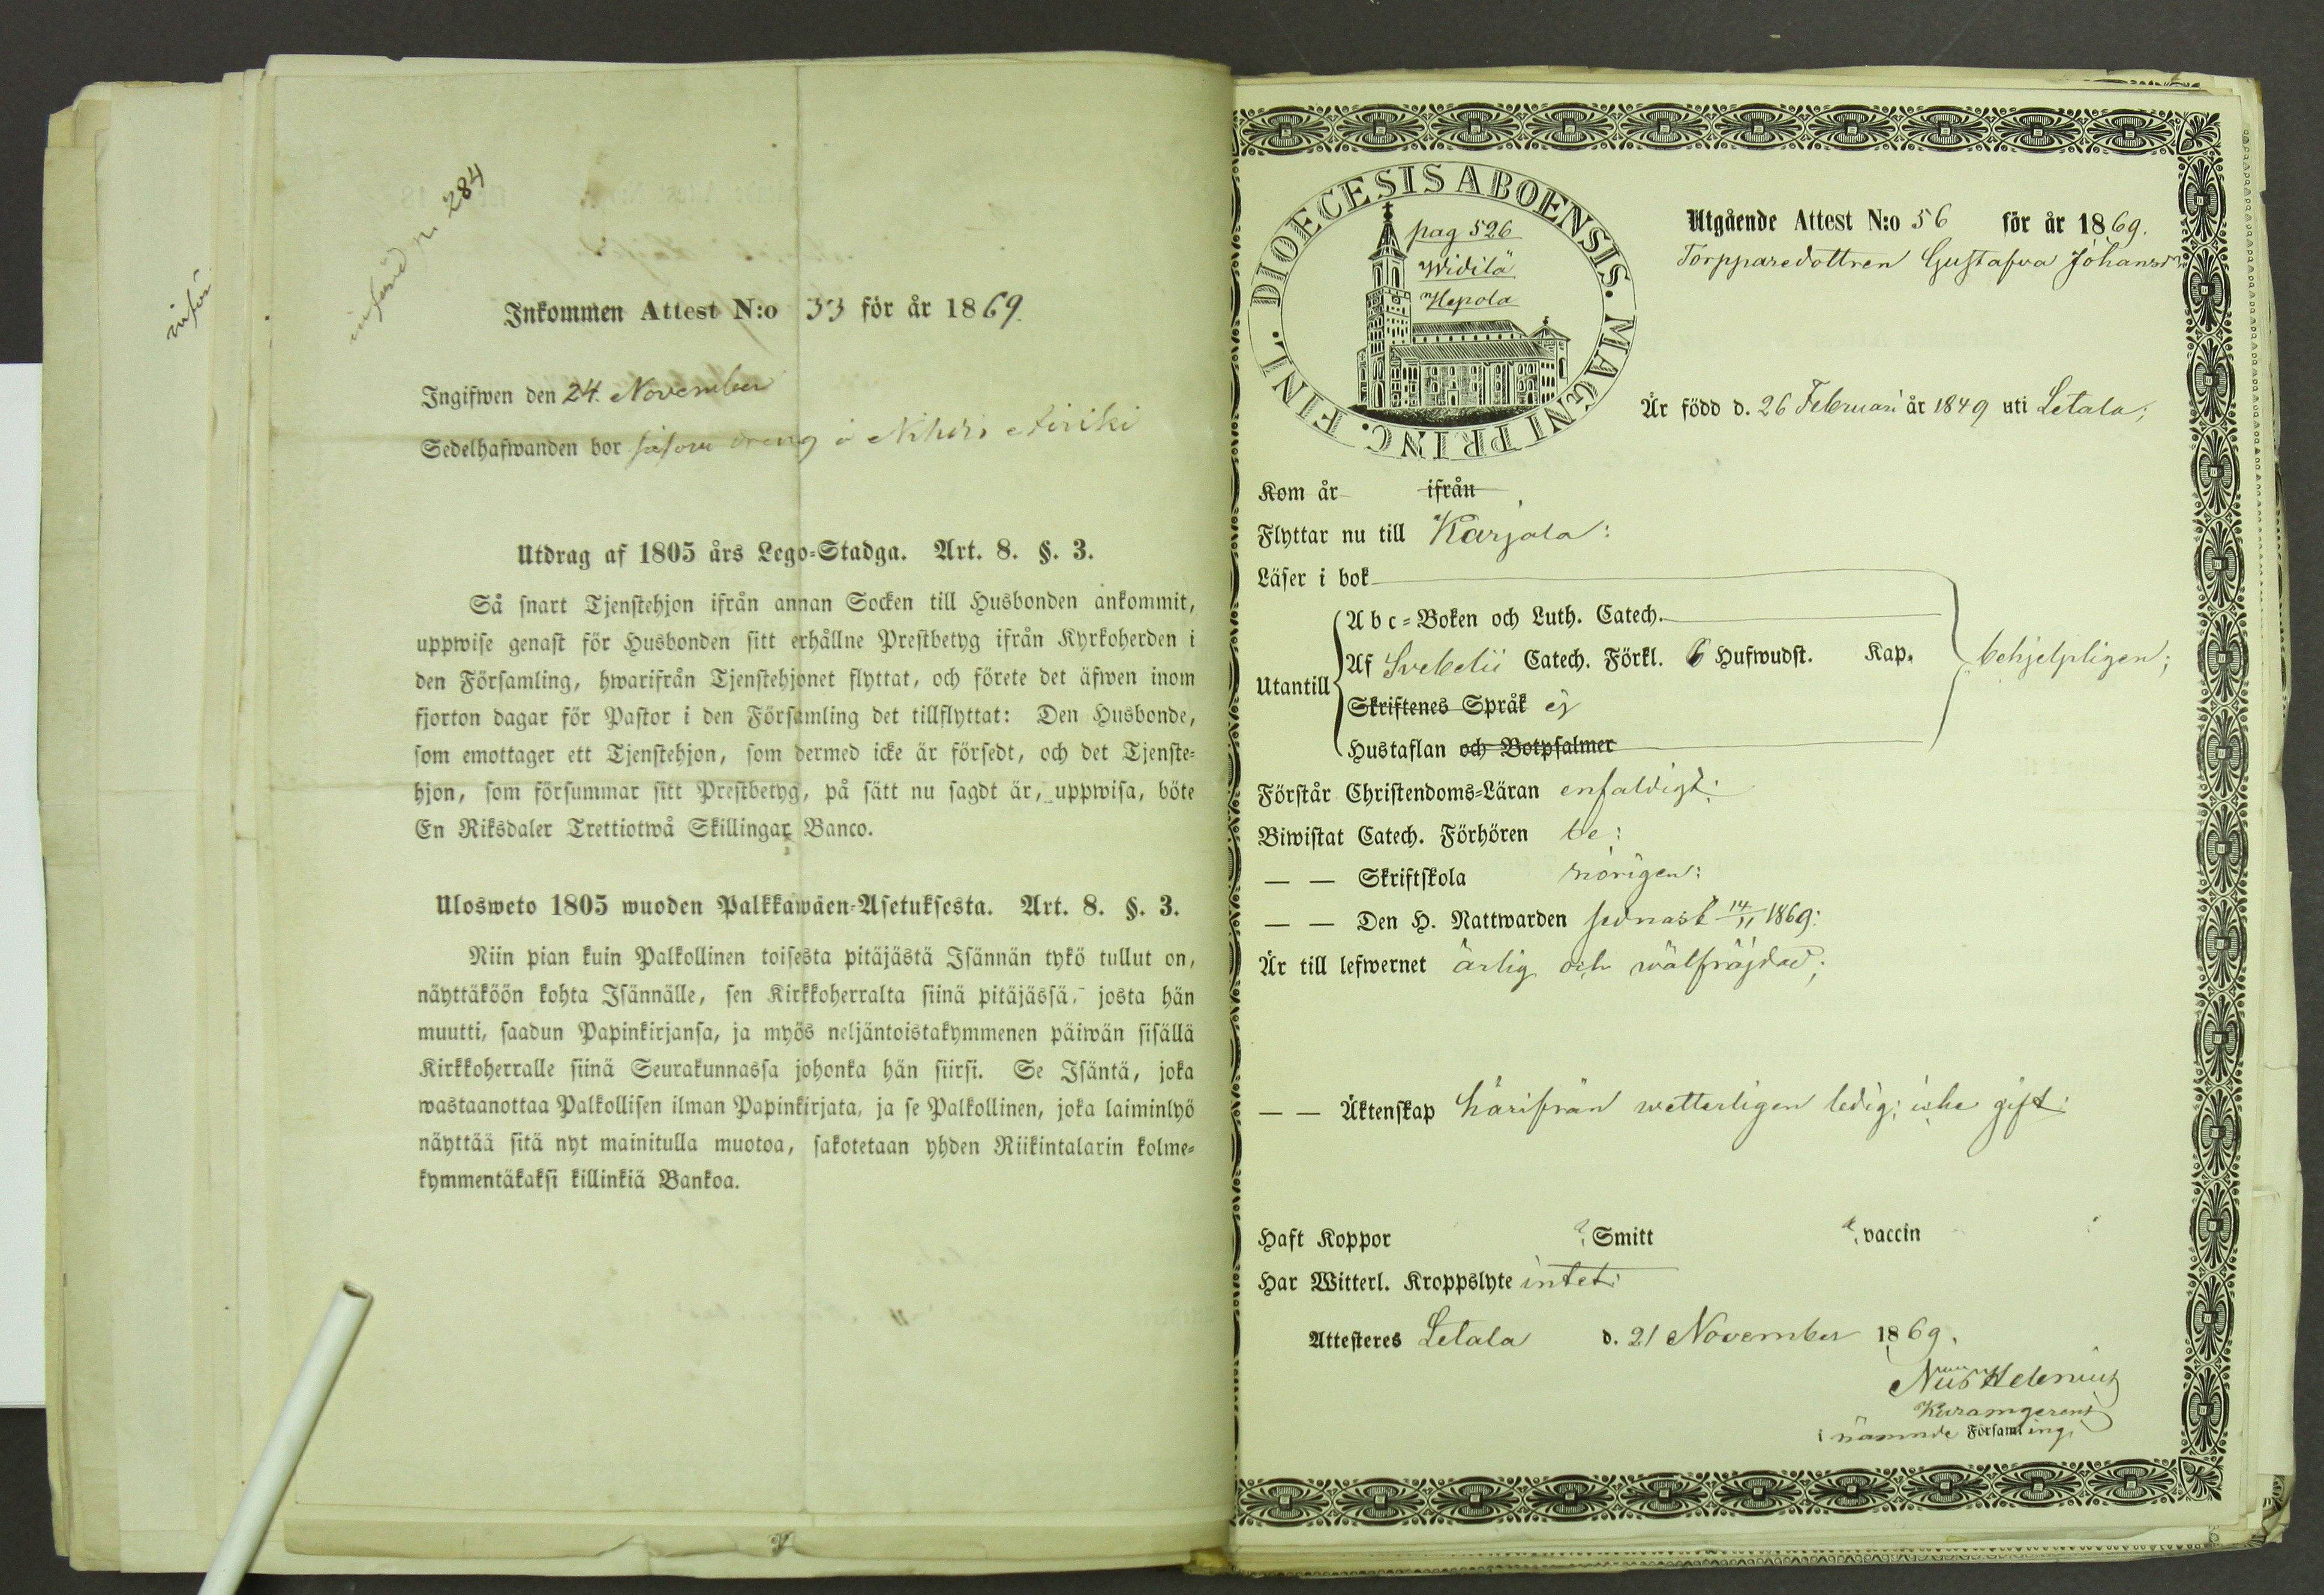 införd n. 284
Inkommen Attest N:o 33 för år 1869.
Ingifwen den 24. November
Sedelhafwanden bor såsom dreng i Nihois
Utdrag af 1805 års Lego-Stadga. Art. 8. §. 3.
Så snart Tjenstehjon ifrån annan Socken till Husbonden ankommit,
uppwise genast för Husbonden sitt erhållne Prestbetyg ifrån Kyrkoherden i
den Församling, hwarifrån Tjenstehjonet flyttat, och förete det äfwen inom
fjorton dagar för Pastor i den Församling det tillflyttat: Den Husbonde,
som emottager ett Tjenstehjon, som dermed icke är försedt, och det Tjenste-
hjon, som försummar sitt Prestbetyg, på sätt nu sagdt är, uppwisa, böte
En Riksdaler Trettiotwå Skillingar Banco.
Ulosweto 1805 wuoden Palkkawäen-Asetuksesta. Art. 8. §. 3.
Niin pian kuin Palkollinen toisesta pitäjästä Isännän tykö tullut on,
näyttäköön kohta Isännälle, sen Kirkkoherralta siinä pitäjässä, josta hän
muutti, saadun Papinkirjansa, ja myös neljäntoistakymmenen päiwän sisällä
Kirkkoherralle siinä Seurakunnassa johonka hän siirsi. Se Isäntä, joka
wastaanottaa Palkollisen ilman Papinkirjata, ja se Palkollinen, joka laiminlyö
näyttää sitä nyt mainitulla muotoa, sakotetaan yhden Riikintalarin kolme-
kymmentäkaksi killinkiä Bankoa.
DIOECESIS ABOENSIS. MAGNI PRINC. FINL.
pag 526
Widilä
Hepola
Utgående Attest N:o 56 för år 1869.
Torpparedottren Gustafva Johansdr
Är född d. 26 Februari år 1849 uti Letala;
Kom år ifrån
Flyttar nu till Karjala:
Läser i bok
Utantill
Abc-Boken och Luth. Catech.
Af Svebelii Catech. Förkl. 6 Hufwudst. Kap.
Skriftenes Språk ej
Hustaflan och Botpsalmer
behjelpligen;
Förstår Christendoms-Läran enfaldigt:
Biwistat Catech. Förhören be:
— — Skriftskola hörigen:
— — Den H. Nattwarden sednast 14/11 1869:
Är till lefwernet ärlig och wälfräjdad;
— — Äktenskap härifrån wetterligen ledig; icke gift:
Haft Koppor Smitt vaccin
Har Witterl. Kroppslyte intet:
Attesteres Letala d. 21 November 1869.
Helenius
i nämnde Församling.